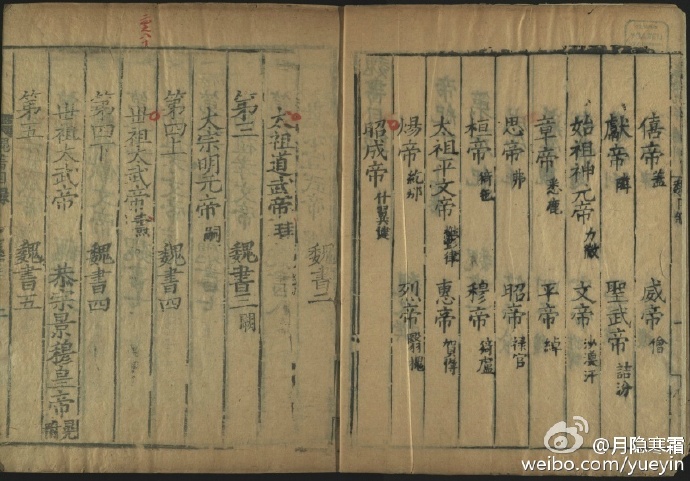 僖帝 蓋 威帝 儈
獻帝 鄰 聖武帝 詰汾
始祖神元帝 力微 文帝 沙漠汗
章帝 悉鹿 平帝 綽
思帝 弗 昭帝 祿官
桓帝 猗㐌 穆帝 猗盧
太祖平文帝 鬱律 惠帝 賀傉
煬帝 紇那 烈帝 翳槐
昭成帝 什翼犍
魏書二
太祖道武帝 珪
第三 魏書三 闕
太宗明元帝 嗣
第四上 魏書四
世祖太武帝 燾
第四下 魏書四
世祖太武帝 恭宗景穆皇帝 晃
第五 魏書五
@月隐寒霜
weibo.com/yueyin